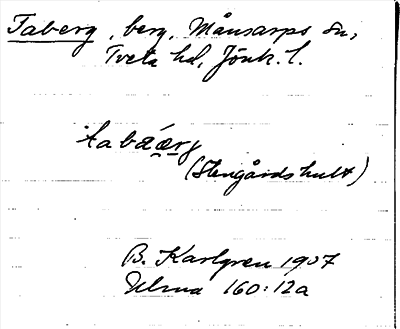 Taberg, berg, Månsarps sn,
Tveta hd, Jönk. l.
tabáærj
(Stengårdshult)
B. Karlgren 1907
160:12a